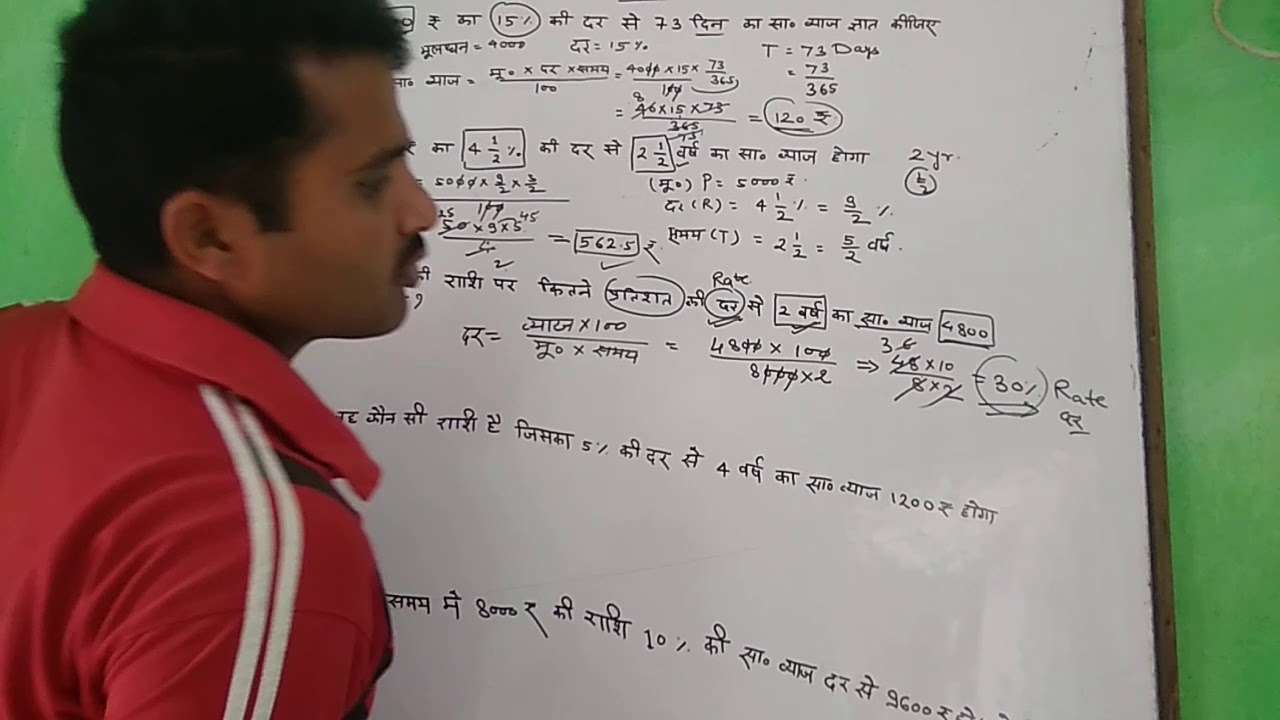 ₹ का 15% की दर से 73 दिन का सा० ब्याज ज्ञात कीजिए
मूलधन = 4000 दर = 15% T = 73 Days
सा० ब्याज = मू० × दर × समय / 100 = 4000 × 15 × 73/365 / 100 = 73/365
= 40 × 15 × 73 / 365 = 120 ₹
का 4 1/2 % की दर से 2 1/2 वर्ष का सा० ब्याज होगा 2 yr. 1/2
= 5000 × 9/2 × 5/2 / 100 (मू०) P = 5000 ₹
दर (R) = 4 1/2 % = 9/2 %
50 × 9 × 5 / 4 = 562.5 ₹ समय (T) = 2 1/2 = 5/2 वर्ष
की राशि पर कितने प्रतिशत की दर से 2 वर्ष का सा० ब्याज 4800
Rate
दर = ब्याज × 100 / मू० × समय = 4800 × 100 / 8000 × 2 ⇒ 48 × 10 / 8 × 2 = 30% Rate
दर
वह कौन सी राशि है जिसका 5% की दर से 4 वर्ष का सा० ब्याज 1200 ₹ होगा
समय में 8000 ₹ की राशि 10% की सा० ब्याज दर से 9600 ₹